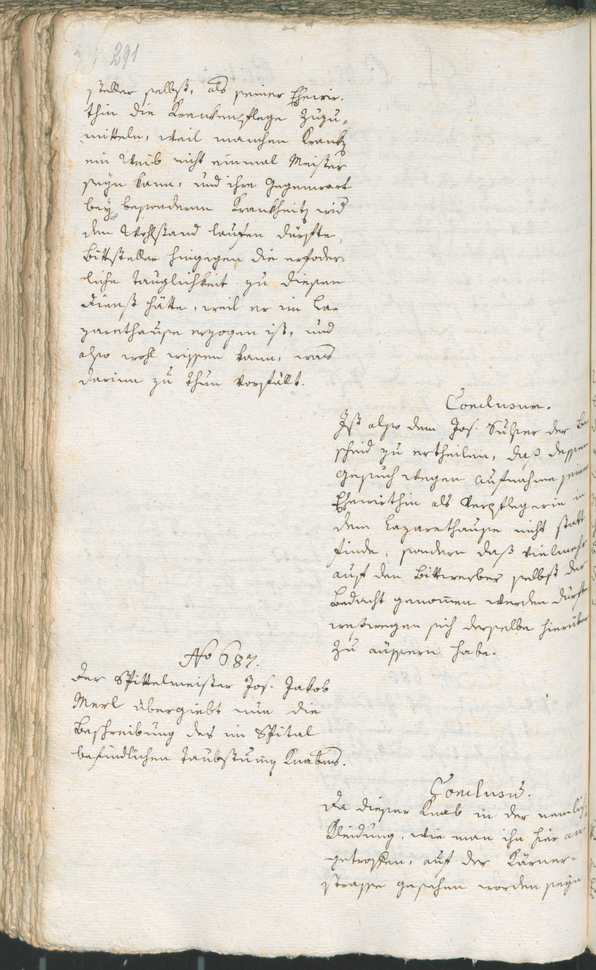 291
steller selbst, als seiner Ehewir-
thin die Krankenpflege zuzu-
mitteln, weil manchen Krank
ein Weib nicht einmal Meister
seyn kann, und ihre Gegenwart
bey besonderen Krankheiten wid
den Wohlstand laufen dürfte,
Bittsteller hingegen die erfoder-
liche Tauglichkeit zu diesem
Dienst hätte, weil er im La-
zarethause erzogen ist, und
also wohl wissen kann, was
darinn zu thun vorfällt.
Conclusum.
Ist also dem Jos. Sulzer der Be
scheid zu ertheilen, daß dessen
Gesuch wegen Aufnahme seiner
Ehewirthin als Verpflegerin in
dem Lazarethause nicht statt
finde, sondern daß vielmehr
auf den Bittwerber selbst der
Bedacht genommen werden dürfte
weßwegen sich derselbe hierüber
zu äussern habe.
No 687.
Der Spittelmeister Jos. Jakob
Merl übergiebt nun die
Beschreibung des im Spital
befindlichen Taubstumen Knabens.
Conclusum.
Da dieser Knab in der nemlich
Kleidung, wie man ihn hier an
getroffen, auf der Kärner-
strasse gesehen worden seyn